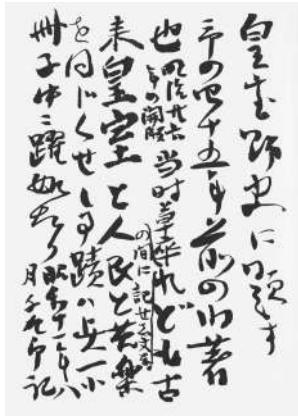 皇室野史に題す
予の四十五年前の旧著
也 明治廿六年の開版 当時草卒れども古
来皇室と人民と苦楽
の間に記せる
を同じくせし事蹟ハ此一小
冊子中ニ躍如たり 昭和十一年八
月